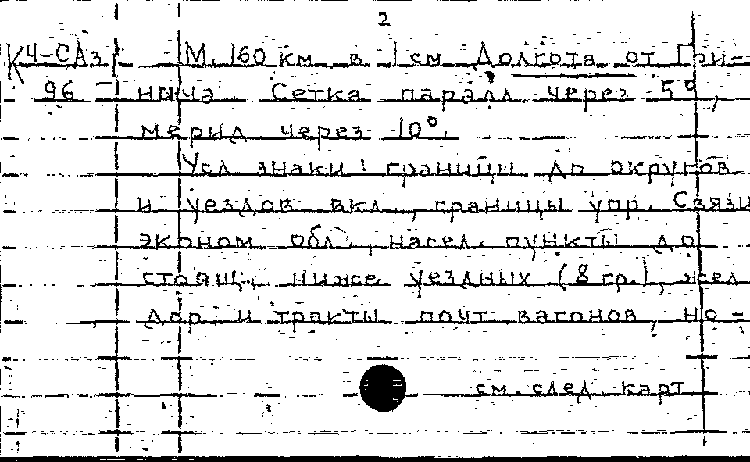 2
К 4-САз М. 160 км в 1 см Долгота от Грин-
96 нича Сетка паралл через 5°,
мерид через 10°.
Усл знаки: границы до округов
и уездов вкл., границы упр. Связи
эконом обл., насел. пункты до
стоящ. ниже уездных (8 гр.), жел
дор и тракты почт вагонов, но-
см. след. карт